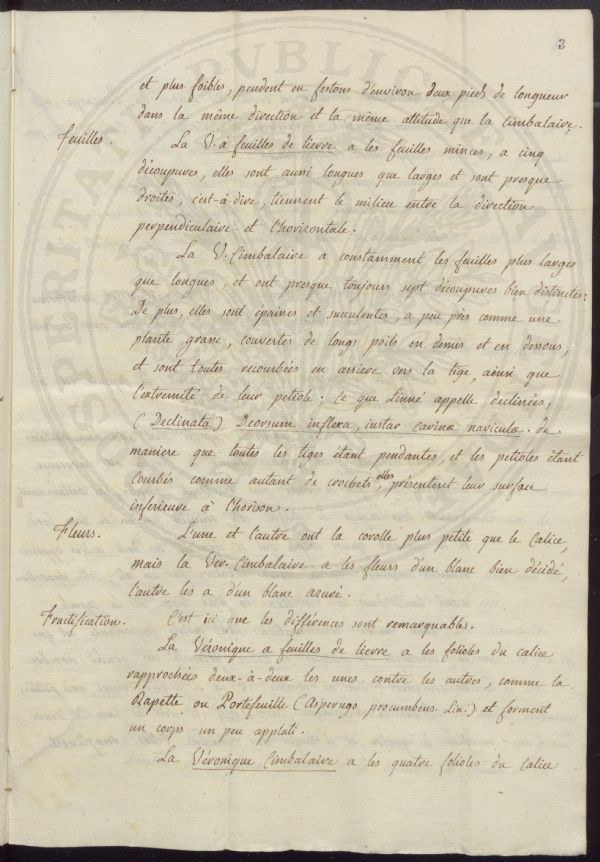 3
et plus foibles, pendent en festons d'environ deux pieds de longueur
dans la même direction et la même attitude que la Cimbalaire.
feuilles.
La V. à feuilles de lierre a les feuilles minces, a cinq
découpures, elles sont aussi longues que larges et sont presque
droites, c'est-à-dire, tiennent le milieu entre la direction
perpendiculaire et l'horizontale.
La V. Cimbalaire a constamment les feuilles plus larges
que longues, et ont presque toujours sept découpures bien distinctes:
De plus, elles sont épaisses et succulentes, a peu près comme une
plante grasse, couvertes de longs poils en dessus et en dessous,
et sont toutes recourbées en arriere vers la tige, ainsi que
l'extremité de leur petiole; ce que Linné appelle declinées,
(Declinata) Deorsum inflexa, instar carinæ naviculæ. de
maniere que toutes les tiges étant pendantes, et les petioles étant
courbés comme autant de crochets, elles présentent leur surface
inferieure à l'horison.
Fleurs.
L'une et l'autre ont la corolle plus petite que le Calice,
mais la Ver. Cimbalaire a les fleurs d'un blanc bien décidé,
l'autre les a d'un blanc azuré.
Fructification.
C'est ici que les différences sont remarquables.
La Véronique a feuilles de lierre a les folioles du calice
rapprochées deux-à-deux les unes contre les autres, comme la
Rapette ou Portefeuille (Asperugo procumbens. Lin.) et forment
un corps un peu applati.
La Véronique Cimbalaire a les quatre folioles du Calice